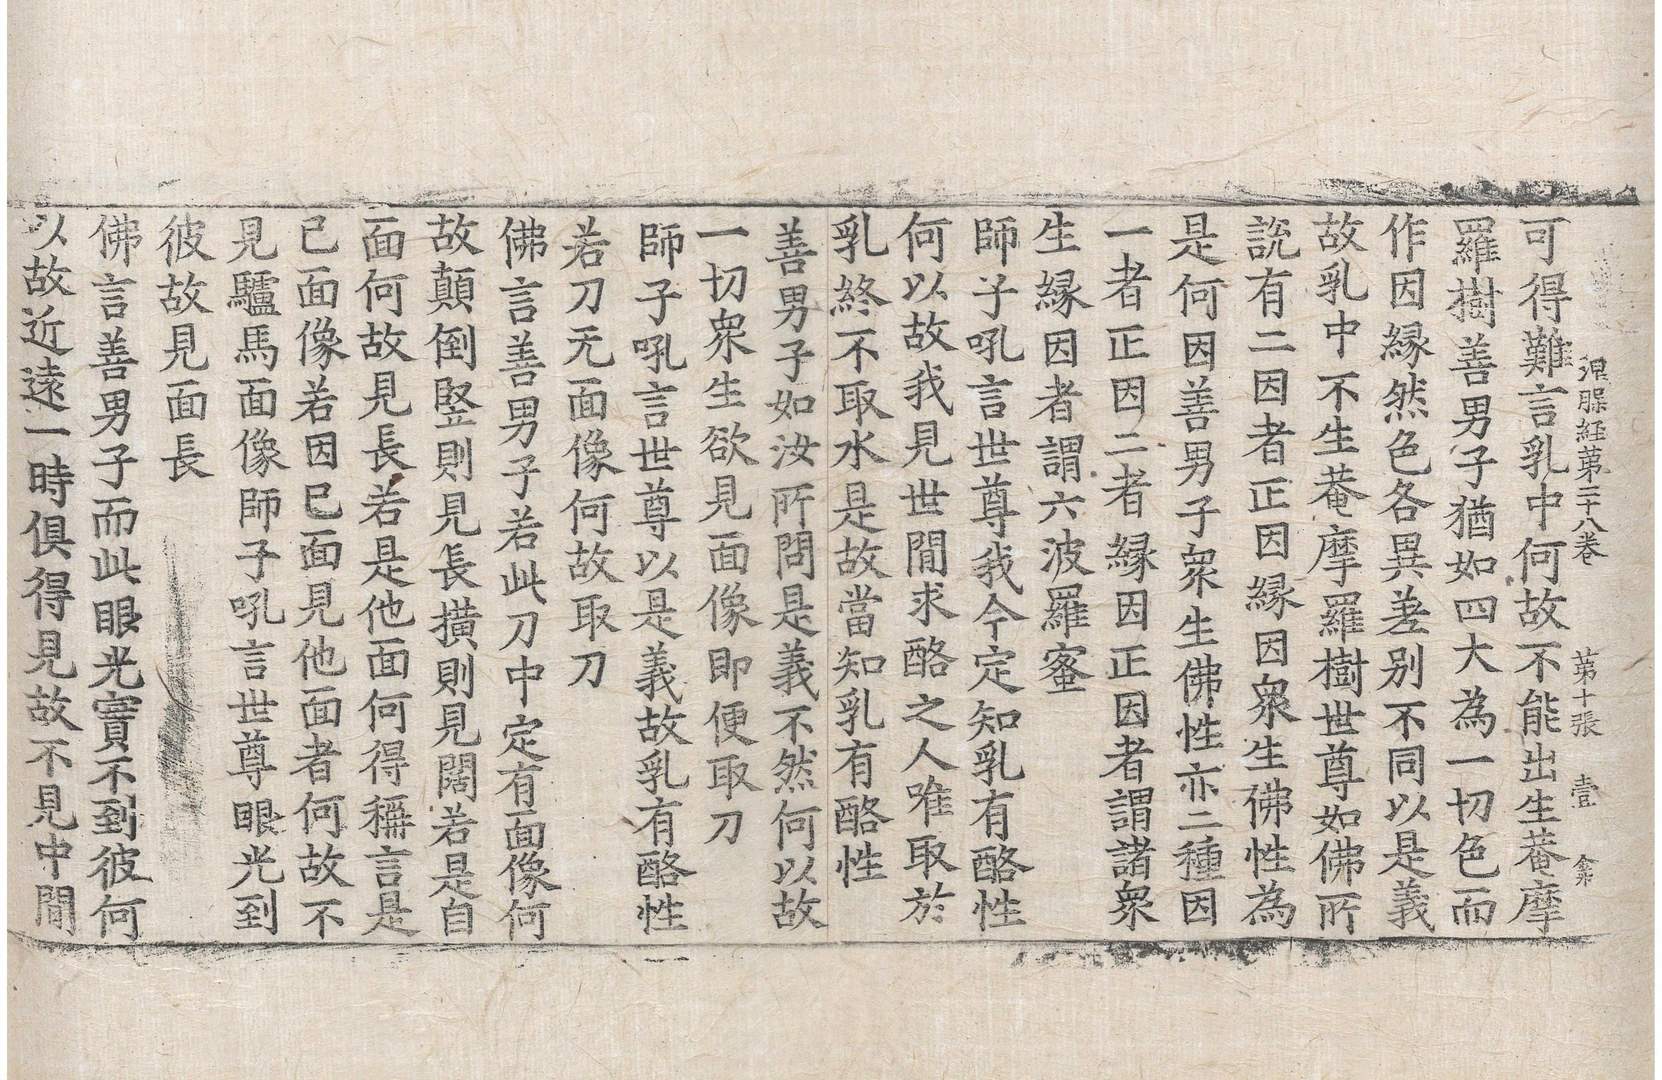 涅槃経苐二十八卷 苐十張 壹
可得難言乳中何故不能出生菴摩
羅樹善男子猶如四大為一切色而
作因縁然色各異差别不同以是義
故乳中不生菴摩羅樹世尊如佛所
説有二因者正因縁因衆生佛性為
是何因善男子衆生佛性亦二種因
一者正因二者縁因正因者謂諸衆
生縁因者謂六波羅蜜
師子吼言世尊我今定知乳有酪性
何以故我見世間求酪之人唯取於
乳終不取水是故當知乳有酪性
善男子如汝所問是義不然何以故
一切衆生欲見面像即便取刀
師子吼言世尊以是義故乳有酪性
若刀无面像何故取刀
佛言善男子若此刀中定有面像何
故顛倒竪則見長横則見闊若是自
面何故見長若是他面何得稱言是
已面像若因已面見他面者何故不
見驢馬面像師子吼言世尊眼光到
彼故見面長
佛言善男子而此眼光實不到彼何
以故近遠一時俱得見故不見中間